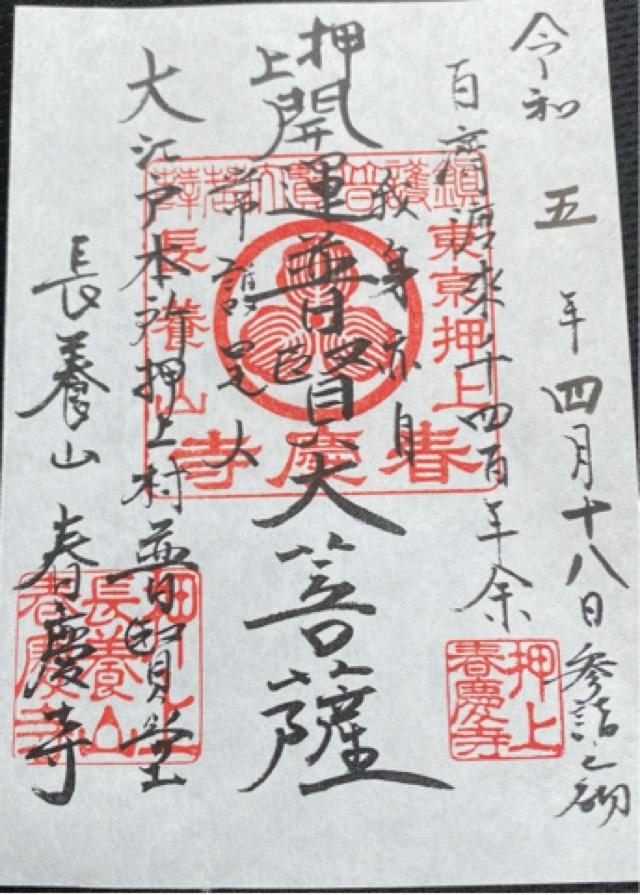 令和五年四月十八日参詣之砌
百済渡来千四百年余
我等亦自
押上
開運普賢大菩薩
常護是人
大江戸本所押上村普賢堂
長養山春慶寺
鎮護普賢大菩薩
東京押上
長養山
春慶寺
押上
春慶寺
押上
長養山
春慶寺